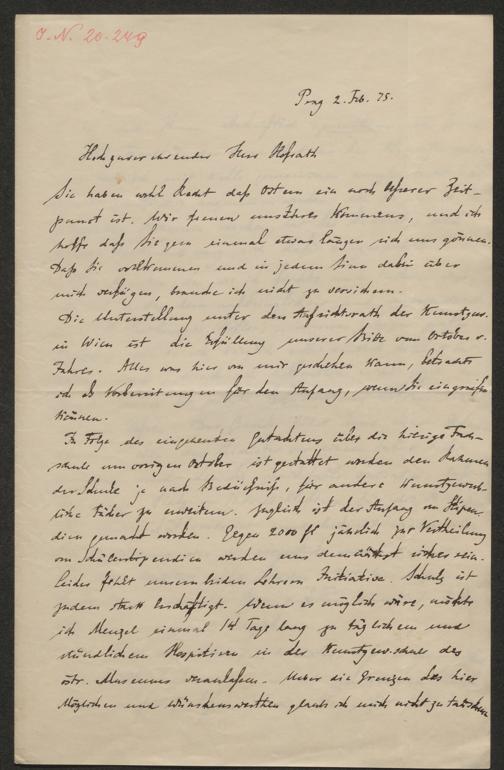 J. N. 20.249
Prag 2. Feb. 75.
Hochzuverehrender Herr Hofrath
Sie haben wohl Recht daß Ostern ein noch besserer Zeit-
punct ist. Wir freuen uns Ihres Kommens, und ich
hoffe daß Sie gern einmal etwas länger sich uns gönnen.
Daß Sie vollkommen und in jedem Sinn dabei über
mich verfügen, brauche ich nicht zu versichern.
Die Unterstellung unter den Aufsichtsrath der Kunstgew.
in Wien ist die Erfüllung unserer Bitte vom October v.
Jahres. Alles was hier von mir geschehen kann, betrachte
ich als Vorbereitungen für den Anfang, wenn Sie eingreifen
können.
In Folge des eingehenden Gutachtens über die hiesige Fach-
schule im vorigen October ist gestattet worden den Rahmen
der Schule je nach Bedürfniß, für andere Kunstgewerb-
liche Fächer zu erweitern. Zugleich ist der Anfang von Stipen-
dien gemacht worden. Gegen 2000 fl jährlich zur Vertheilung
von Schülerstipendien werden uns demnächst sicher sein.
Leider fehlt unsern beiden Lehrern Initiative. Schulz ist
zudem stark beschäftigt. Wenn es möglich wäre, möchte
ich Menzel einmal 14 Tage lang zu täglichem und
stündlichem Hospitiren in der Kunstgew.schule des
östr. Museums veranlaßen. Ueber die Grenzen des hier
Möglichen und wünschenswerthen glaube ich mich nicht zu täuschen